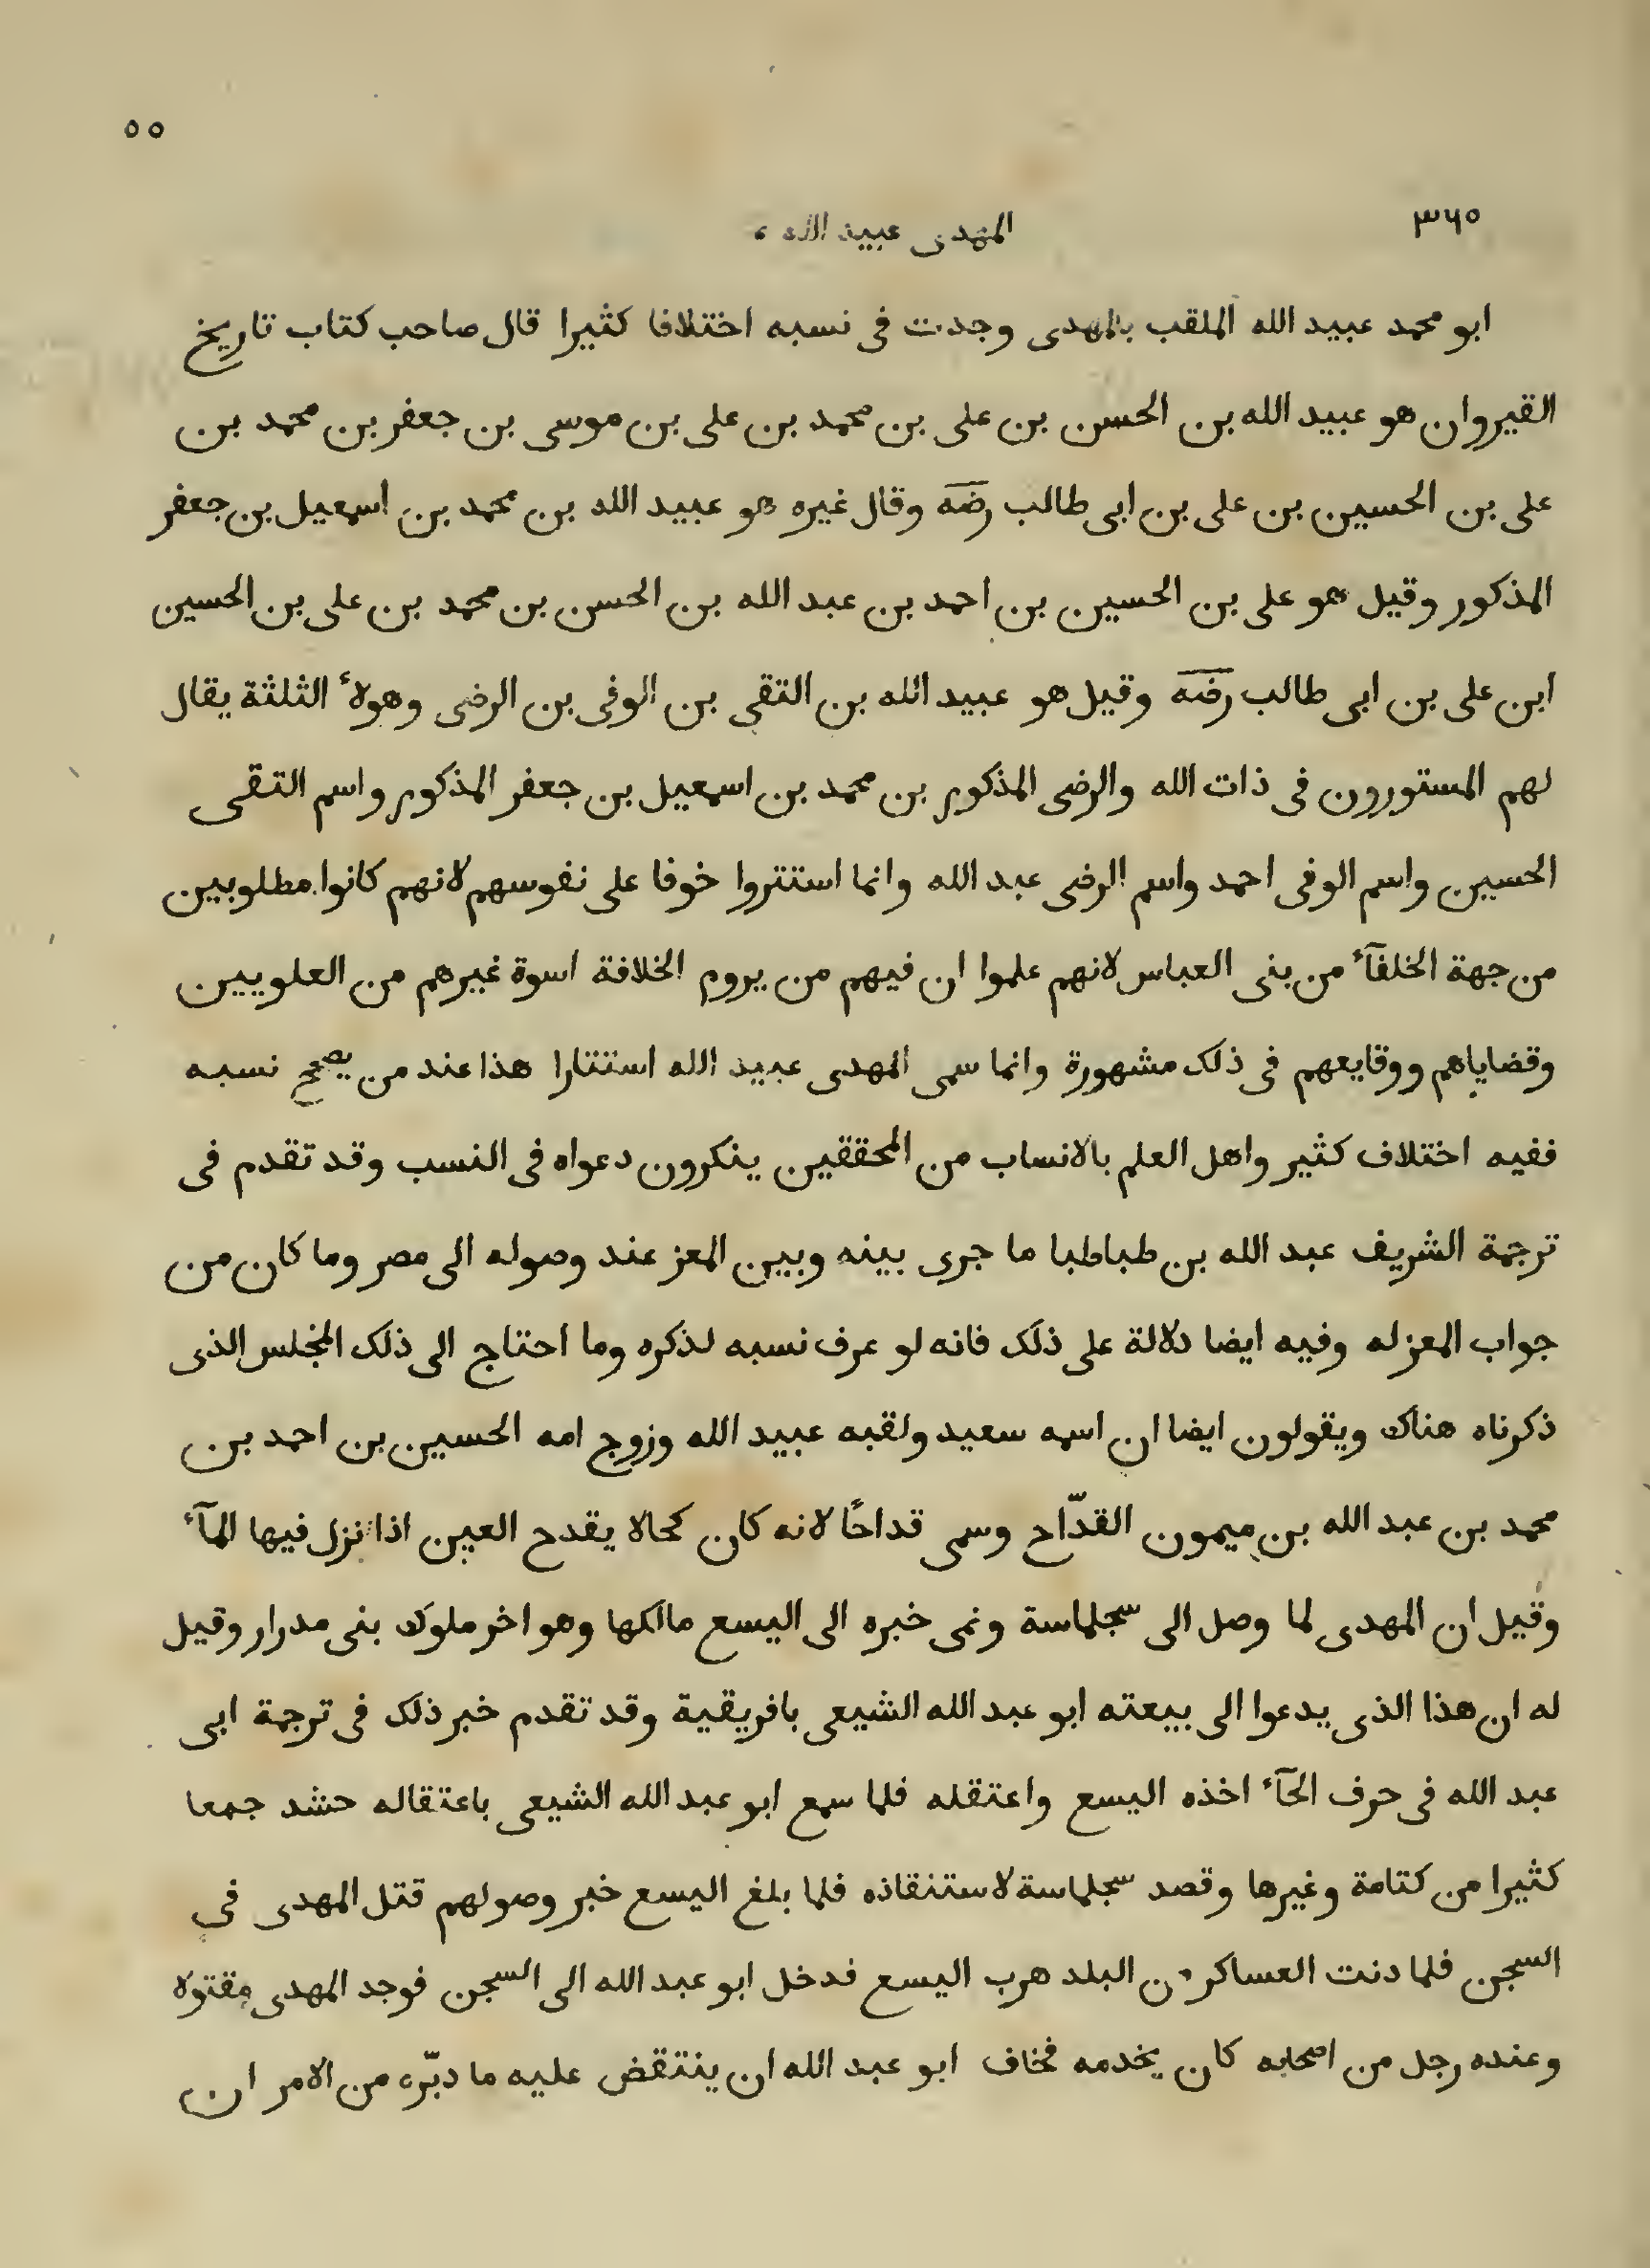 ٥٥
٣٦٥
المهدى عبيد الله ،
ابو محمد عبيد الله الملقب بالمهدى وجدت فى نسبه اختلافا كثيرا قال صاحب كتاب تاريخ
القيروان هو عبيد الله بن الحسن بن على بن محمد بن على بن موسى بن جعفر بن محمد بن
على بن الحسين بن على بن ابى طالب رضه وقال غيره هو عبيد الله بن محمد بن اسمعيل بن جعفر
المذكور وقيل هو على بن الحسين بن احمد بن عبد الله بن الحسن بن محمد بن على بن الحسين
ابن على بن ابى طالب رضه وقيل هو عبيد الله بن التقى بن الوفى بن الرضى وهولاء الثلثة يقال
لهم المستورون فى ذات الله والرضى المذكور بن محمد بن اسمعيل بن جعفر المذكور واسم التقى
الحسين واسم الوفى احمد واسم الرضى عبد الله وانما استتروا خوفا على نفوسهم لانهم كانوا مطلوبين
من جهة الخلفآء من بنى العباس لانهم علموا ان فيهم من يروم الخلافة اسوة غيرهم من العلويين
وقضاياهم ووقايعهم فى ذلك مشهورة وانما سمى المهدى عبيد الله استتارا هذا عند من يصحح نسبه
ففيه اختلاف كثير واهل العلم بالانساب من المحققين ينكرون دعواه فى النسب وقد تقدم فى
ترجمة الشريف عبد الله بن طباطبا ما جرى بينه وبين المعز عند وصوله الى مصر وما كان من
جواب المعز له وفيه ايضا دلالة على ذلك فانه لو عرف نسبه لذكره وما احتاج الى ذلك المجلس الذى
ذكرناه هناك ويقولون ايضا ان اسمه سعيد ولقبه عبيد الله وزوج امه الحسين بن احمد بن
محمد بن عبد الله بن ميمون القدّاح وسمى قداحًا لانه كان كحالا يقدح العين اذا نزل فيها المآء
وقيل ان المهدى لما وصل الى سجلماسة ونمى خبره الى اليسع مالكها وهو اخر ملوك بنى مدرار وقيل
له ان هذا الذى يدعوا الى بيعته ابو عبد الله الشيعى بافريقية وقد تقدم خبر ذلك فى ترجمة ابى
عبد الله فى حرف الحآء اخذه اليسع واعتقله فلما سمع ابو عبد الله الشيعى باعتقاله حشد جمعا
كثيرا من كتامة وغيرها وقصد سجلماسة لاستنقاذه فلما بلغ اليسع خبر وصولهم قتل المهدى فى
السجن فلما دنت العساكر من البلد هرب اليسع فدخل ابو عبد الله الى السجن فوجد المهدى مقتولا
وعنده رجل من اصحابه كان يخدمه فخاف ابو عبد الله ان ينتقض عليه ما دبّره من الامر ان